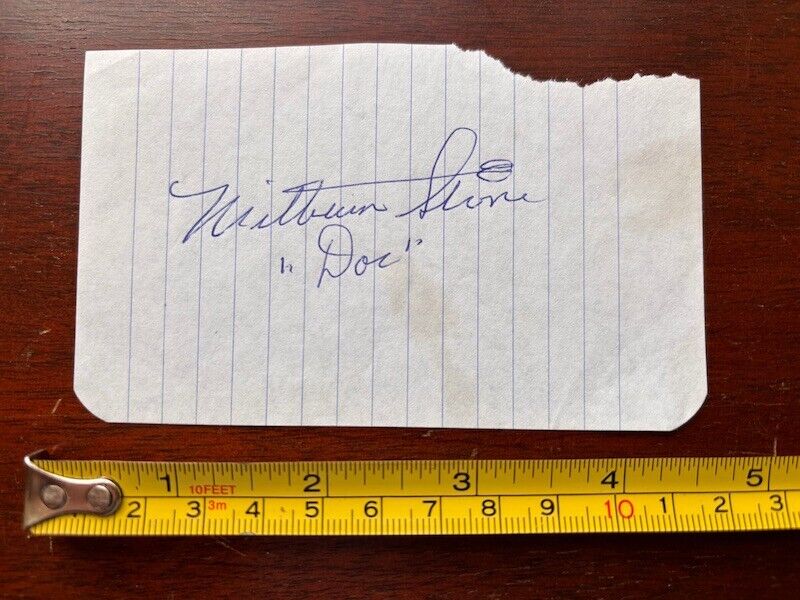 Milburn Stone
"Doc"
1 2 3 4 5
10FEET
3m
2 3 4 5 6 7 8 9 10 1 2 3